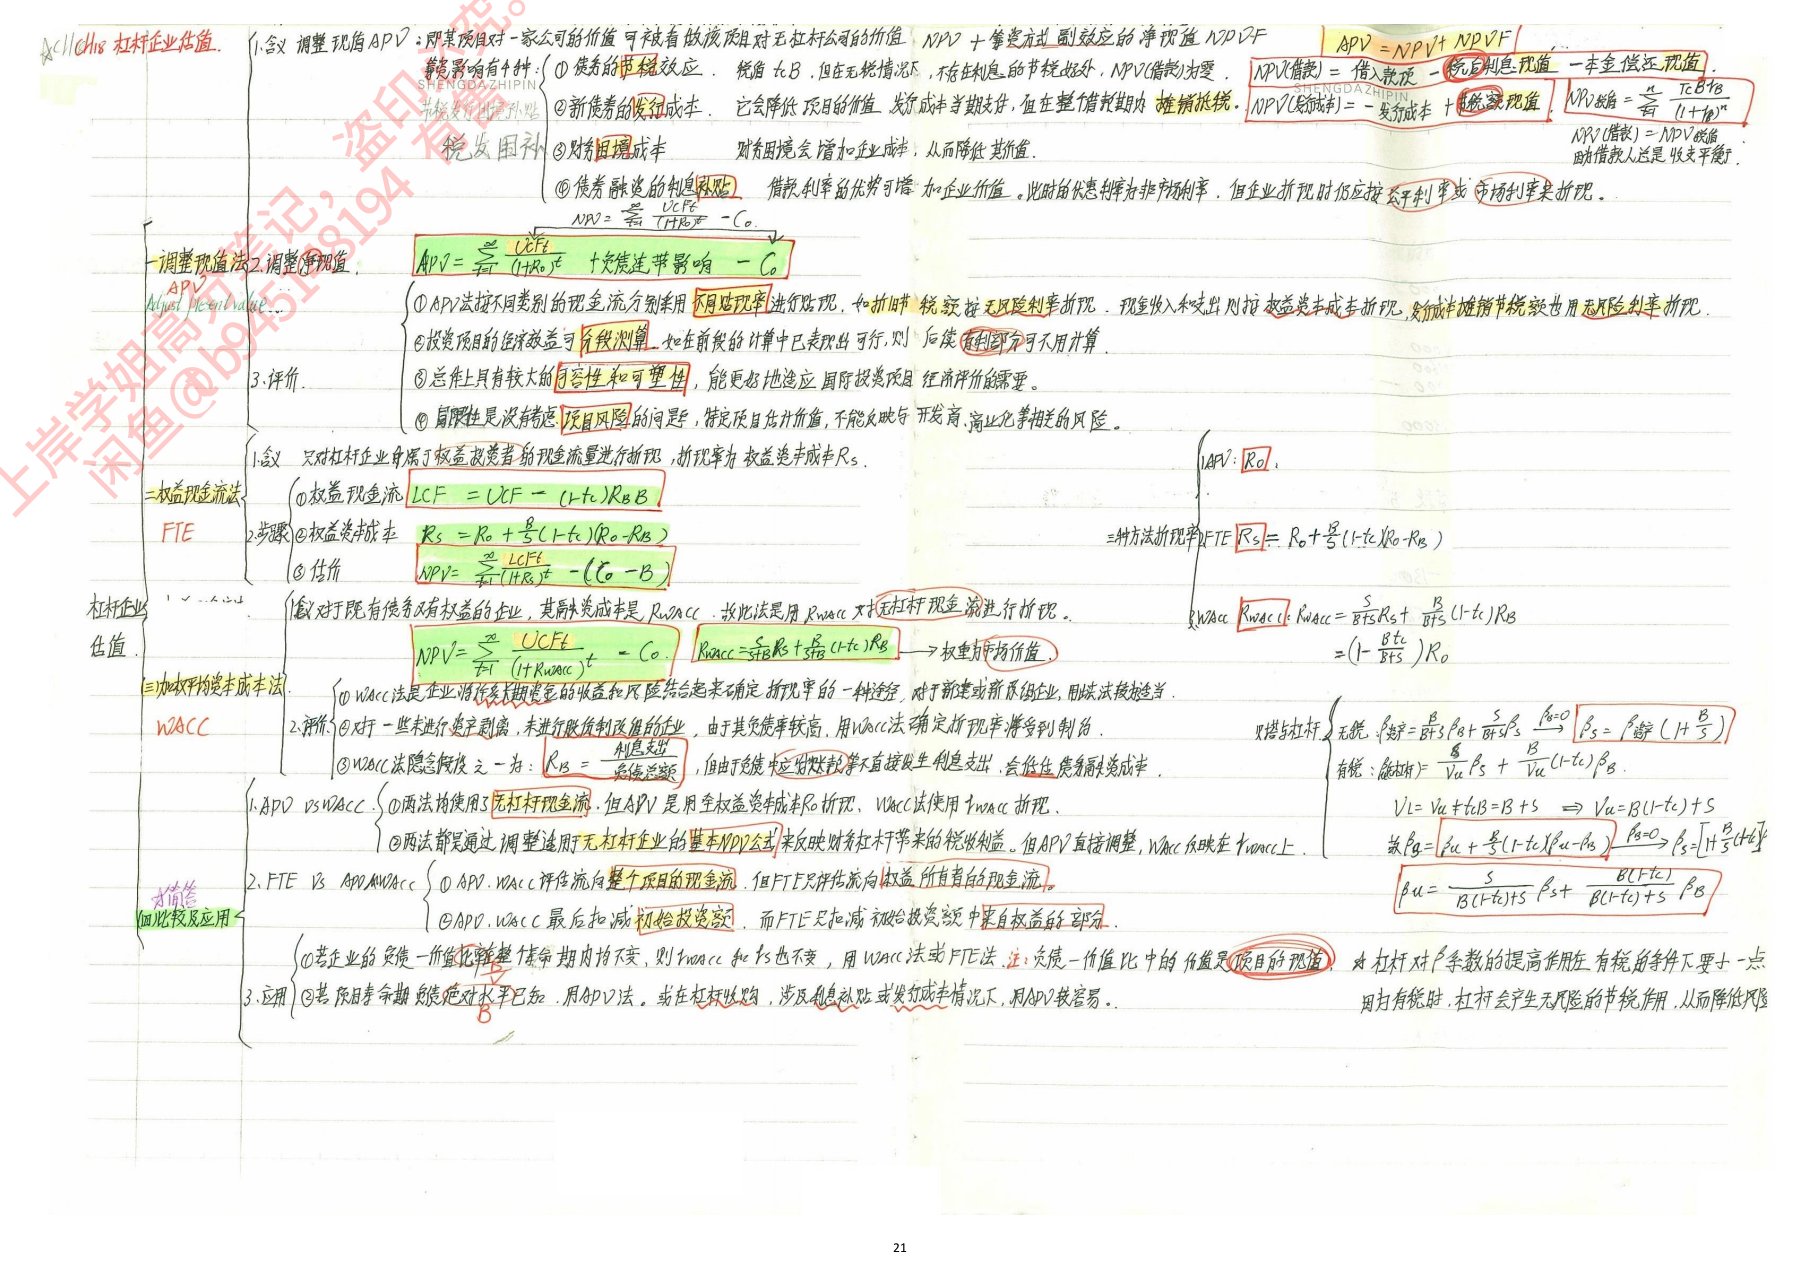 CH18 杠杆企业估值.
1.含义 调整现值APV:即某项目对一家公司的价值可被看做该项目对无杠杆公司的价值 NPV + 筹资方式副效应的净现值NPVF
APV = NPV + NPVF
筹资影响有4种:
①债务的节税效应. 税盾 tcB, 但在无税情况下,不存在利息的节税好处,NPV(借款)为零.
NPV(借款) = 借入款项 - 税后利息现值 - 本金偿还现值.
SHENGDAZHIPIN
SHENGDAZHIPIN
②新债券的发行成本. 它会降低项目的价值 发行成本当期支付,但在整个借款期内摊销抵税.
NPV(发行成本) = - 发行成本 + 节税额现值
NPV税盾 = Σ TcBrB / (1+rB)^n
NPV(借款) = NPV税盾
因为借款人总是收支平衡.
税发困补
③财务困境成本 财务困境会增加企业成本,从而降低其价值.
④债务融资的利息补贴 借款利率的优势可增加企业价值。此时的优惠利率为非市场利率. 但企业折现时仍应按公平利率或市场利率来折现。
NPV = Σ UCFt/(1+R0)^t - C0.
一调整现值法 2.调整净现值.
APV = Σ UCFt/(1+R0)^t + 负债连带影响 - C0
APV
Adjust present value...
3.评价.
①APV法按不同类别的现金流分别采用不同贴现率进行贴现,如折旧节税额按无风险利率折现. 现金收入和支出则按权益资本成本折现,发行成本摊销节税额也用无风险利率折现.
②投资项目的经济效益可分段测算.如在前段的计算中已表现出可行,则后续有利部分可不用计算.
③总体上具有较大的可容性和可塑性,能更好地适应国际投资项目经济评价的需要。
④局限性是没有考虑项目风险的问题,特定项目估计价值,不能反映与开发商、商业化等相关的风险。
二权益现金流法
FTE
1.含义 只对杠杆企业中属于权益投资者的现金流量进行折现,折现率为权益资本成本Rs.
2.步骤
①权益现金流 LCF = UCF - (1-tc)RBB
②权益资本成本 Rs = R0 + B/S(1-tc)(R0-RB)
③估价 NPV = Σ LCFt/(1+Rs)^t - (C0 - B)
三种方法折现率
1.APV: R0.
2.FTE Rs = R0 + B/S(1-tc)(R0-RB)
3.WACC RWACC: RWACC = S/(B+S) Rs + B/(B+S) (1-tc)RB
= (1 - Btc/(B+S)) R0
杠杆企业估值.
三)加权平均资本成本法
WACC
1.含义 对于既有债务又有权益的企业, 其融资成本是RWACC. 故此法是用RWACC对无杠杆现金流进行折现。
NPV = Σ UCFt/(1+RWACC)^t - C0. RWACC = S/(S+B) Rs + B/(S+B) (1-tc)RB → 权重为市场价值.
2.评价.
①WACC法是企业将许多长期资金的收益和风险结合起来确定折现率的一种途径. 对于新建或新原组企业,用此法较适当.
②对于一些未进行资产剥离,未进行股份制改准的企业, 由于其负债率较高, 用WACC法确定折现率将受到制约.
③WACC法隐含假设之一为: RB = 利息支出/负债总额, 但由于负债中应付账款等不直接发生利息支出. 会低估债务融资成本.
β塔与杠杆
无税: β资产 = B/(B+S) βB + S/(B+S) βS →(βB=0) βS = β资产(1+B/S)
有税: β(杠杆) = S/VU βS + B/VU (1-tc)βB.
VL = VU + tcB = B+S ⇒ VU = B(1-tc)+S
故βS = βU + B/S(1-tc)(βU-βB) →(βB=0) βS = [1+B/S(1-tc)]
βU = S/(B(1-tc)+S) βS + B(1-tc)/(B(1-tc)+S) βB
A简答
四)比较及应用
1.APV vs WACC.
①两法均使用了无杠杆现金流.但APV是用全权益资本成本R0折现. WACC法使用rWACC折现.
②两法都是通过调整适用于无杠杆企业的基本NPV公式来反映财务杠杆带来的税收利益。但APV直接调整,WACC反映在rWACC上.
2.FTE vs APV和WACC
①APV.WACC评估流向整个项目的现金流. 但FTE只评估流向权益所有者的现金流。
②APV.WACC最后扣减初始投资额. 而FTE只扣减初始投资额中来自权益的部分.
3.应用
①若企业的负债-价值比率在整个寿命期内均不变. 则rWACC和rs也不变, 用WACC法或FTE法. 注:负债-价值比中的价值是项目的现值.
②若项目寿命期负债绝对水平已知. 用APV法。或在杠杆收购, 涉及利息补贴或发行成本情况下,用APV较容易。
B
☆杠杆对β系数的提高作用在有税的条件下要小一点
因为有税时,杠杆会产生无风险的节税作用,从而降低风险
上岸学姐高分笔记,盗印必究。
闲鱼@b945128194 有售
21